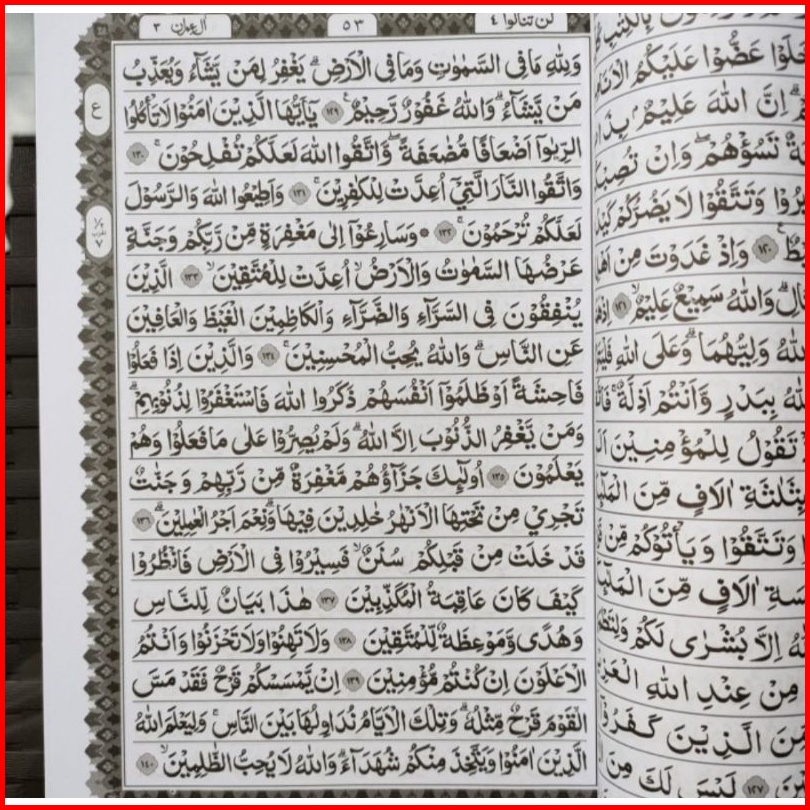 لن تنالوا ٤
٥٣
اٰل عمران ٣
وَلِلّٰهِ مَا فِى السَّمٰوٰتِ وَمَا فِى الْاَرْضِۗ يَغْفِرُ لِمَنْ يَّشَاۤءُ وَيُعَذِّبُ
مَنْ يَّشَاۤءُ ۗ وَاللّٰهُ غَفُوْرٌ رَّحِيْمٌ ࣖ ١٢٩ يٰٓاَيُّهَا الَّذِيْنَ اٰمَنُوْا لَا تَأْكُلُوا
الرِّبٰوٓا اَضْعَافًا مُّضٰعَفَةً ۖوَّاتَّقُوا اللّٰهَ لَعَلَّكُمْ تُفْلِحُوْنَ ۚ ١٣٠
وَاتَّقُوا النَّارَ الَّتِيْٓ اُعِدَّتْ لِلْكٰفِرِيْنَ ۚ ١٣١ وَاَطِيْعُوا اللّٰهَ وَالرَّسُوْلَ
لَعَلَّكُمْ تُرْحَمُوْنَۚ ١٣٢ ۞ وَسَارِعُوْٓا اِلٰى مَغْفِرَةٍ مِّنْ رَّبِّكُمْ وَجَنَّةٍ
عَرْضُهَا السَّمٰوٰتُ وَالْاَرْضُۙ اُعِدَّتْ لِلْمُتَّقِيْنَۙ ١٣٣ الَّذِيْنَ
يُنْفِقُوْنَ فِى السَّرَّاۤءِ وَالضَّرَّاۤءِ وَالْكَاظِمِيْنَ الْغَيْظَ وَالْعَافِيْنَ
عَنِ النَّاسِۗ وَاللّٰهُ يُحِبُّ الْمُحْسِنِيْنَۚ ١٣٤ وَالَّذِيْنَ اِذَا فَعَلُوْا
فَاحِشَةً اَوْ ظَلَمُوْٓا اَنْفُسَهُمْ ذَكَرُوا اللّٰهَ فَاسْتَغْفَرُوْا لِذُنُوْبِهِمْۗ
وَمَنْ يَّغْفِرُ الذُّنُوْبَ اِلَّا اللّٰهُ ۗ وَلَمْ يُصِرُّوْا عَلٰى مَا فَعَلُوْا وَهُمْ
يَعْلَمُوْنَ ١٣٥ اُولٰۤىِٕكَ جَزَاۤؤُهُمْ مَّغْفِرَةٌ مِّنْ رَّبِّهِمْ وَجَنّٰتٌ
تَجْرِيْ مِنْ تَحْتِهَا الْاَنْهٰرُ خٰلِدِيْنَ فِيْهَا ۗ وَنِعْمَ اَجْرُ الْعٰمِلِيْنَۗ ١٣٦
قَدْ خَلَتْ مِنْ قَبْلِكُمْ سُنَنٌۙ فَسِيْرُوْا فِى الْاَرْضِ فَانْظُرُوْا
كَيْفَ كَانَ عَاقِبَةُ الْمُكَذِّبِيْنَ ١٣٧ هٰذَا بَيَانٌ لِّلنَّاسِ
وَهُدًى وَّمَوْعِظَةٌ لِّلْمُتَّقِيْنَ ١٣٨ وَلَا تَهِنُوْا وَلَا تَحْزَنُوْا وَاَنْتُمُ
الْاَعْلَوْنَ اِنْ كُنْتُمْ مُّؤْمِنِيْنَ ١٣٩ اِنْ يَّمْسَسْكُمْ قَرْحٌ فَقَدْ مَسَّ
الْقَوْمَ قَرْحٌ مِّثْلُهٗ ۗوَتِلْكَ الْاَيَّامُ نُدَاوِلُهَا بَيْنَ النَّاسِۚ وَلِيَعْلَمَ اللّٰهُ
الَّذِيْنَ اٰمَنُوْا وَيَتَّخِذَ مِنْكُمْ شُهَدَاۤءَ ۗوَاللّٰهُ لَا يُحِبُّ الظّٰلِمِيْنَۙ ١٤٠
ع
عَضُّوْا عَلَيْكُمُ
اِنَّ اللّٰهَ عَلِيْمٌ
تَسُؤْهُمْۖ وَاِنْ
وَتَتَّقُوْا لَا يَضُرُّكُمْ
١٢٠ وَاِذْ غَدَوْتَ مِنْ
وَاللّٰهُ سَمِيْعٌ عَلِيْمٌۙ ١٢١
وَلِيُّهُمَا ۗ وَعَلَى اللّٰهِ
بِبَدْرٍ وَّاَنْتُمْ اَذِلَّةٌ ۚ
تَقُوْلُ لِلْمُؤْمِنِيْنَ
بِثَلٰثَةِ اٰلَافٍ مِّنَ
وَتَتَّقُوْا وَيَأْتُوْكُمْ مِّنْ
اٰلَافٍ مِّنَ
اِلَّا بُشْرٰى لَكُمْ
مِنْ عِنْدِ اللّٰهِ
الَّذِيْنَ كَفَرُوْٓا
١٢٧ لَيْسَ لَكَ مِنَ